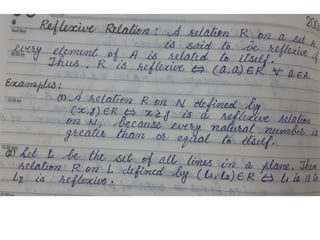 200
Reflexive Relation: A relation R on a set A
is said to be reflexive if
every element of A is related to itself.
Thus, R is reflexive ⇔ (a,a)∈R ∀ a∈A.
Examples:
(1) A relation R on N defined by
(x,y)∈R ⇔ x≥y is a reflexive relation
on N, because every natural number is
greater than or equal to itself.
(2) Let L be the set of all lines in a plane. Then
relation R on L defined by (L₁,L₂)∈R ⇔ L₁ is || to
L₂ is reflexive.